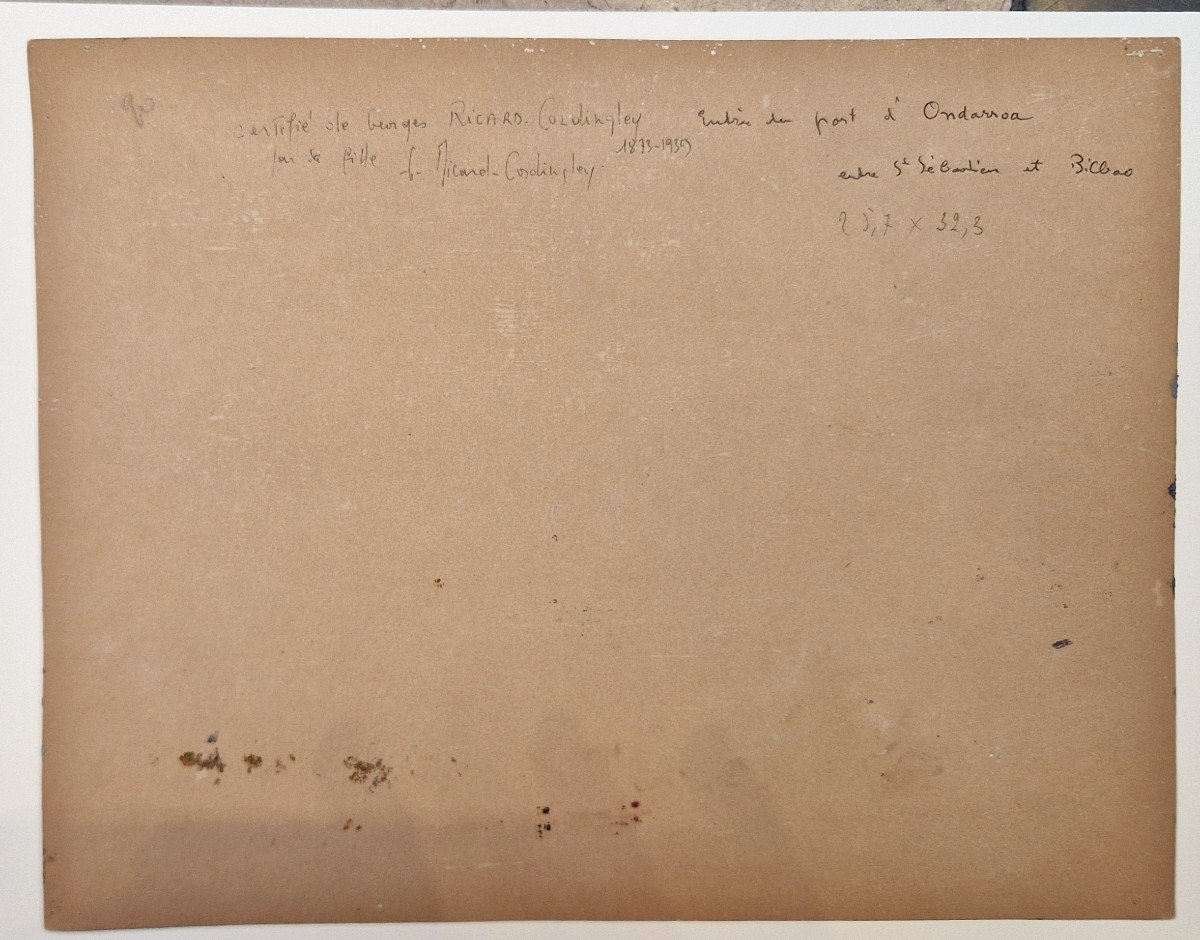 90
certifié de Georges RICARD-Cordingley
1873-1939
par sa fille f. Ricard-Cordingley
Entrée du port d'Ondarroa
entre St Sébastien et Bilbao
25,7 x 32,3